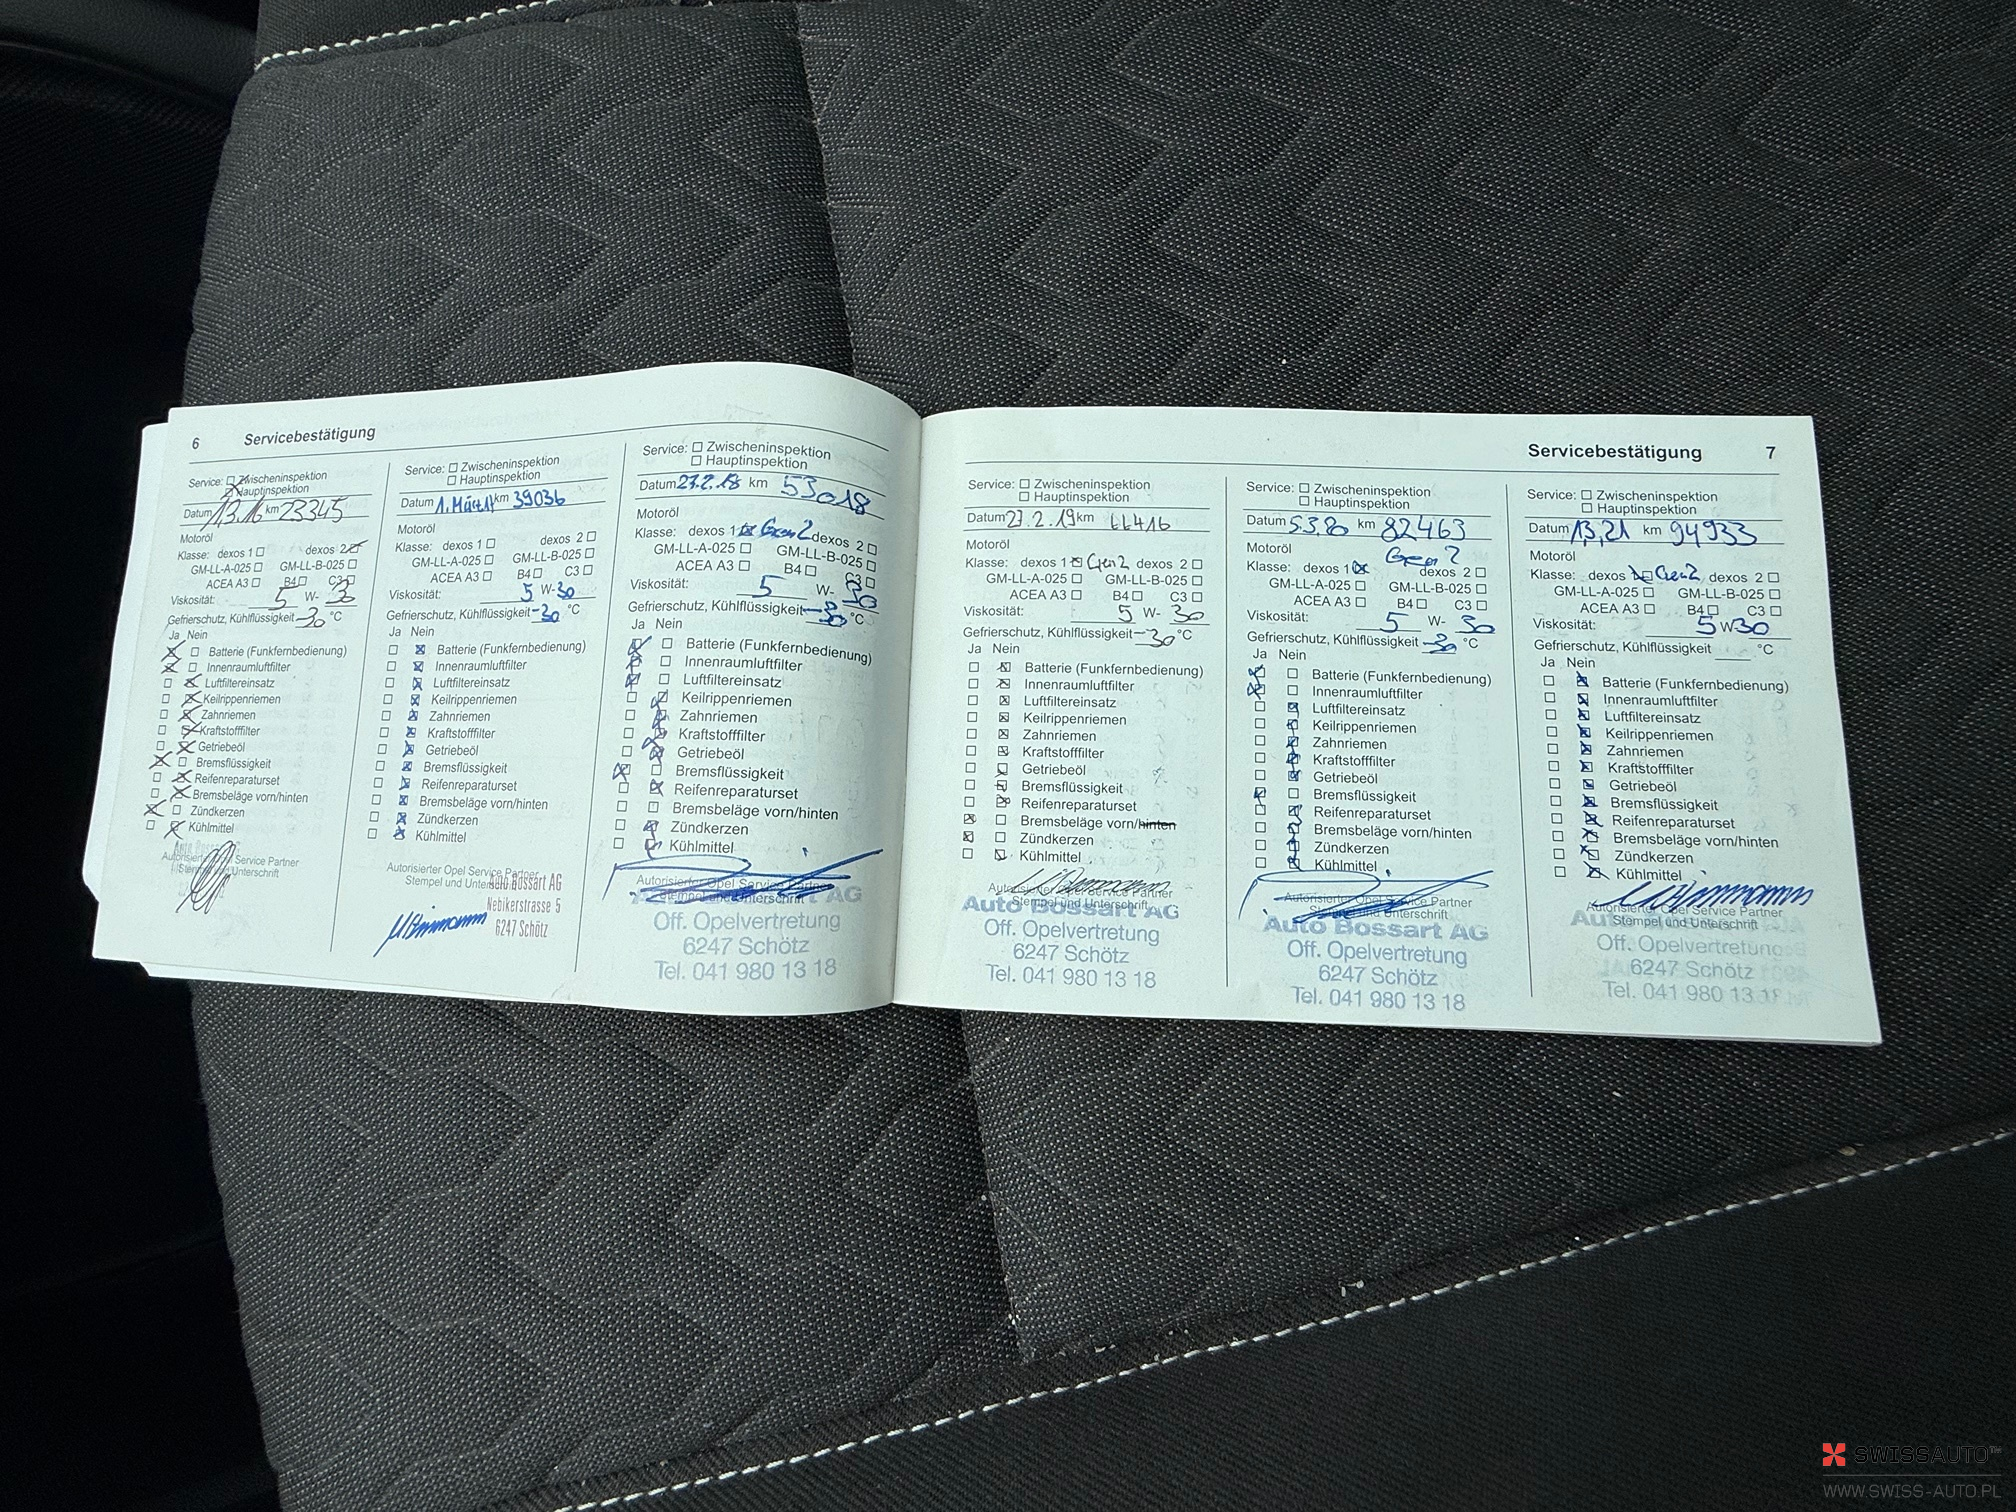 6 Servicebestätigung
Service: Zwischeninspektion
Hauptinspektion
Datum 1/3.16 km 23345
Motoröl
Klasse: dexos 1 dexos 2
GM-LL-A-025 GM-LL-B-025
ACEA A3 B4 C3
Viskosität: 5 W- 30
Gefrierschutz, Kühlflüssigkeit -30 °C
Ja Nein
Batterie (Funkfernbedienung)
Innenraumluftfilter
Luftfiltereinsatz
Keilrippenriemen
Zahnriemen
Kraftstofffilter
Getriebeöl
Bremsflüssigkeit
Reifenreparaturset
Bremsbeläge vorn/hinten
Zündkerzen
Kühlmittel
Autorisierter Opel Service Partner
Stempel und Unterschrift
Service: Zwischeninspektion
Hauptinspektion
Datum 1. März 17 km 39036
Motoröl
Klasse: dexos 1 dexos 2
GM-LL-A-025 GM-LL-B-025
ACEA A3 B4 C3
Viskosität: 5 W-30
Gefrierschutz, Kühlflüssigkeit -30 °C
Ja Nein
Batterie (Funkfernbedienung)
Innenraumluftfilter
Luftfiltereinsatz
Keilrippenriemen
Zahnriemen
Kraftstofffilter
Getriebeöl
Bremsflüssigkeit
Reifenreparaturset
Bremsbeläge vorn/hinten
Zündkerzen
Kühlmittel
Autorisierter Opel Service Partner
Stempel und Unterschrift
Auto Bossart AG
Nebikerstrasse 5
6247 Schötz
Service: Zwischeninspektion
Hauptinspektion
Datum 27.2.18 km 53018
Motoröl
Klasse: dexos 1 Gen 2 dexos 2
GM-LL-A-025 GM-LL-B-025
ACEA A3 B4 C3
Viskosität: 5 W- 30
Gefrierschutz, Kühlflüssigkeit -30 °C
Ja Nein
Batterie (Funkfernbedienung)
Innenraumluftfilter
Luftfiltereinsatz
Keilrippenriemen
Zahnriemen
Kraftstofffilter
Getriebeöl
Bremsflüssigkeit
Reifenreparaturset
Bremsbeläge vorn/hinten
Zündkerzen
Kühlmittel
Autorisierter Opel Service Partner
Stempel und Unterschrift
AG
Off. Opelvertretung
6247 Schötz
Tel. 041 980 13 18
Servicebestätigung 7
Service: Zwischeninspektion
Hauptinspektion
Datum 27.2.19 km 66416
Motoröl
Klasse: dexos 1 Gen 2 dexos 2
GM-LL-A-025 GM-LL-B-025
ACEA A3 B4 C3
Viskosität: 5 W- 30
Gefrierschutz, Kühlflüssigkeit -30 °C
Ja Nein
Batterie (Funkfernbedienung)
Innenraumluftfilter
Luftfiltereinsatz
Keilrippenriemen
Zahnriemen
Kraftstofffilter
Getriebeöl
Bremsflüssigkeit
Reifenreparaturset
Bremsbeläge vorn/hinten
Zündkerzen
Kühlmittel
Autorisierter Opel Service Partner
Stempel und Unterschrift
Auto Bossart AG
Off. Opelvertretung
6247 Schötz
Tel. 041 980 13 18
Service: Zwischeninspektion
Hauptinspektion
Datum 5.3.20 km 82463
Motoröl Gen 2
Klasse: dexos 1 dexos 2
GM-LL-A-025 GM-LL-B-025
ACEA A3 B4 C3
Viskosität: 5 W- 30
Gefrierschutz, Kühlflüssigkeit -30 °C
Ja Nein
Batterie (Funkfernbedienung)
Innenraumluftfilter
Luftfiltereinsatz
Keilrippenriemen
Zahnriemen
Kraftstofffilter
Getriebeöl
Bremsflüssigkeit
Reifenreparaturset
Bremsbeläge vorn/hinten
Zündkerzen
Kühlmittel
Autorisierter Opel Service Partner
Stempel und Unterschrift
Auto Bossart AG
Off. Opelvertretung
6247 Schötz
Tel. 041 980 13 18
Service: Zwischeninspektion
Hauptinspektion
Datum 1,3,21 km 94933
Motoröl
Klasse: dexos 1 Gen 2 dexos 2
GM-LL-A-025 GM-LL-B-025
ACEA A3 B4 C3
Viskosität: 5 W 30
Gefrierschutz, Kühlflüssigkeit °C
Ja Nein
Batterie (Funkfernbedienung)
Innenraumluftfilter
Luftfiltereinsatz
Keilrippenriemen
Zahnriemen
Kraftstofffilter
Getriebeöl
Bremsflüssigkeit
Reifenreparaturset
Bremsbeläge vorn/hinten
Zündkerzen
Kühlmittel
Autorisierter Opel Service Partner
Stempel und Unterschrift
Off. Opelvertretung
6247 Schötz
Tel. 041 980 13 18
SWISSAUTO™
WWW.SWISS-AUTO.PL